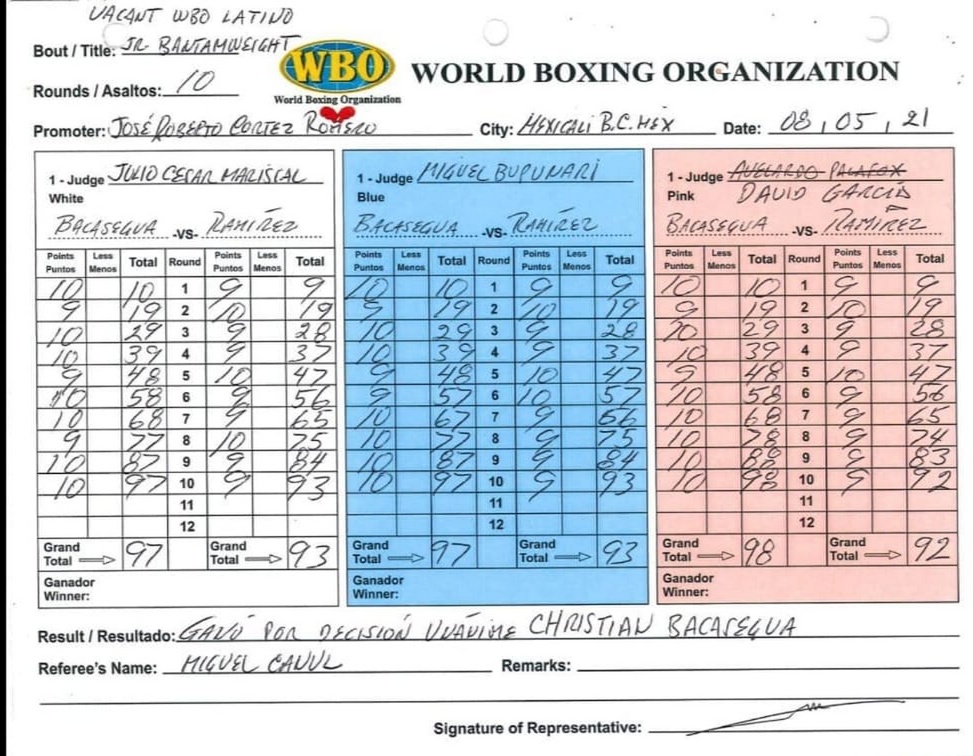 VACANT WBO LATINO
Bout / Title: JR. BANTAMWEIGHT
WBO
World Boxing Organization
WORLD BOXING ORGANIZATION
Rounds / Asaltos: 10
Promoter: JOSÉ ROBERTO CORTEZ ROMERO City: MEXICALI B.C. MEX Date: 08, 05, 21
1 - Judge JULIO CESAR MARISCAL 1 - Judge MIGUEL BUPUNARI 1 - Judge AVELARDO PALAFOX
White Blue Pink DAVID GARCIA
BACASEGUA -VS- RAMÍREZ BACASEGUA -VS- RAMÍREZ BACASEGUA -VS- RAMÍREZ
Points Less Total Round Points Less Total Points Less Total Round Points Less Total Points Less Total Round Points Less Total
Puntos Menos Puntos Menos Puntos Menos Puntos Menos Puntos Menos Puntos Menos
10 10 1 9 9 10 10 1 9 9 10 10 1 9 9
9 19 2 10 19 9 19 2 10 19 9 19 2 10 19
10 29 3 9 28 10 29 3 9 28 10 29 3 9 28
10 39 4 9 37 10 39 4 9 37 10 39 4 9 37
9 48 5 10 47 9 48 5 10 47 9 48 5 10 47
10 58 6 9 56 9 57 6 10 57 10 58 6 9 56
10 68 7 9 65 10 67 7 9 66 10 68 7 9 65
9 77 8 10 75 10 77 8 9 75 10 78 8 9 74
10 87 9 9 84 10 87 9 9 84 10 88 9 9 83
10 97 10 9 93 10 97 10 9 93 10 98 10 9 92
11 11 11
12 12 12
Grand Total 97 Grand Total 93 Grand Total 97 Grand Total 93 Grand Total 98 Grand Total 92
Ganador Ganador Ganador
Winner: Winner: Winner:
Result / Resultado: GANÓ POR DECISIÓN UNÁNIME CHRISTIAN BACASEGUA
Referee's Name: MIGUEL CANUL Remarks:
Signature of Representative: